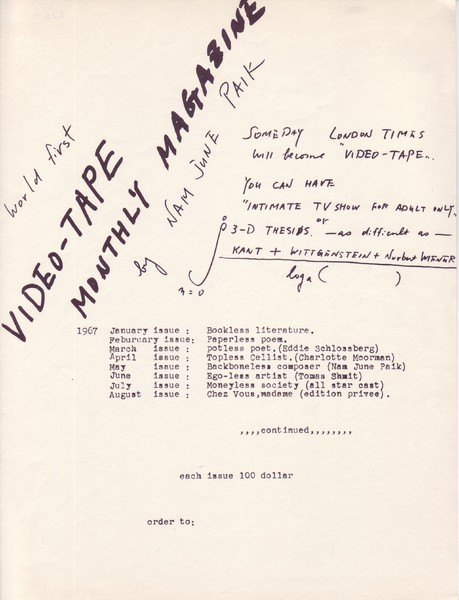 World first
VIDEO-TAPE
MONTHLY MAGAZINE
by NAM JUNE PAIK
SOMEDAY LONDON TIMES
will become "VIDEO-TAPE"..
YOU CAN HAVE
"INTIMATE TV SHOW FOR ADULT ONLY"
or
3-D THESIS. — as difficult as —
KANT + WITTGENSTEIN + Norbert WIENER
loga ( )
3=0
1967 January issue : Bookless literature.
Feburuary issue: Paperless poem.
March issue : potless poet.(Eddie Schlossberg)
April issue : Topless Cellist.(Charlotte Moorman)
May issue : Backboneless composer (Nam June Paik)
June issue : Ego-less artist (Tomas Shmit)
July issue : Moneyless society (all star cast)
August issue : Chez Vous,madame (edition privee).
,,,,continued,,,,,,,,
each issue 100 dollar
order to: